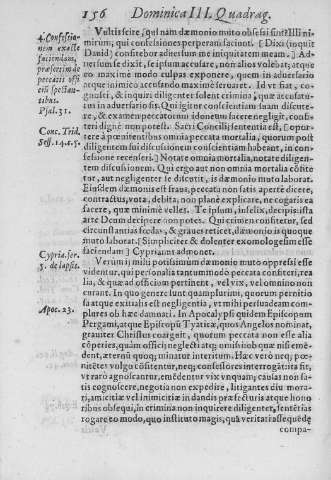 156 Dominica III. Quadrag.
4. Confessionem
exacte
faciendam,
præsertim de
peccatis officii
spectantibus.
Psal. 31.
Conc. Trid.
Sess. 14. c. 5.
Cypria. ser.
5. de lapsis.
Apoc. 23.
Vultis scire, qui nam dæmonio muto obsessi sint? Illi ni-
mirum, qui confessiones perperam faciunt. [Dixi (inquit
Dauid) confitebor aduersum me iniquitatem meam.] Ad-
uersum se dixit, se ipsum accusare, non alios volebat; atque
eo maximè modo culpas exponere, quem in aduersario
atque inimico accusando maximè seruaret. Id vt fiat, co-
gnosci, & inquiri diligenter solent crimina, quæ accusatu-
rus in aduersario sis. Qui igitur conscientiam suam discute-
re, & examen peccatorum idoneum facere negligit, confi-
teri dignè non potest. Sacri Concilij sententia est, [Oportere
à pœnitentibus omnia peccata mortalia, quorum post
diligentem sui discussionem conscientiam habeant, in con-
fessione recenseri.] Notate omnia mortalia, notate diligen-
tem discussionem. Qui ergo aut non omnia mortalia côfite-
tur, aut negligenter se discutit, is dæmonio muto laborat.
Eiusdem dæmonis est fraus, peccata non satis apertè dicere,
contractus, vota, debita, non planè explicare, ne cogaris ea
facere, quæ minimè velles. Te ipsum, infelix, decipis ista
arte Deum decipere non potes. Confitetur quispiam, sed cir-
cunstantias fœdas, & graues reticet, dæmonio is quoque
muto laborat. [Simpliciter & dolenter exomologesim esse
faciendam] Cyprianus admonet.
Verùm multi potissimùm dæmonio muto oppressi esse
videntur, qui personalia tantummodo peccata confiteri, rea
lia, & quæ ad officium pertinent, vel vix, vel omnino non
curant. In quo genere sunt quamplurimi, quorum pernitio
sa atque exitialis est negligentia, vt mihi persuadeam com-
plures ob hæc damnari. In Apocalypsi quidem Episcopum
Pergami, atque Episcopū Tyatiræ, quos Angelos nominat,
grauiter Christus corrigit, quorum peccata non esse alia
cōperies, quàm officij neglecti atq; omissi ob quæ nisi emē-
dent, æternū quoq; minatur interitum. Hæc verò neq; pœ-
nitētes vulgo cōfitentur, neq; confessores interrogāt ita fit,
vt rarò agnoscantur, emēdentur vix vnquam; causas non sa-
tis cognoscere, negotia non expedire, litigantes diu mora-
ri, amicitiæ vel inimicitiæ in dandis præfecturis atque hono
ribus obsequi, in crimina non inquirere diligenter, sentētias
rogare to modo, quo instituto magis, quā veritati assequēdę
compa-